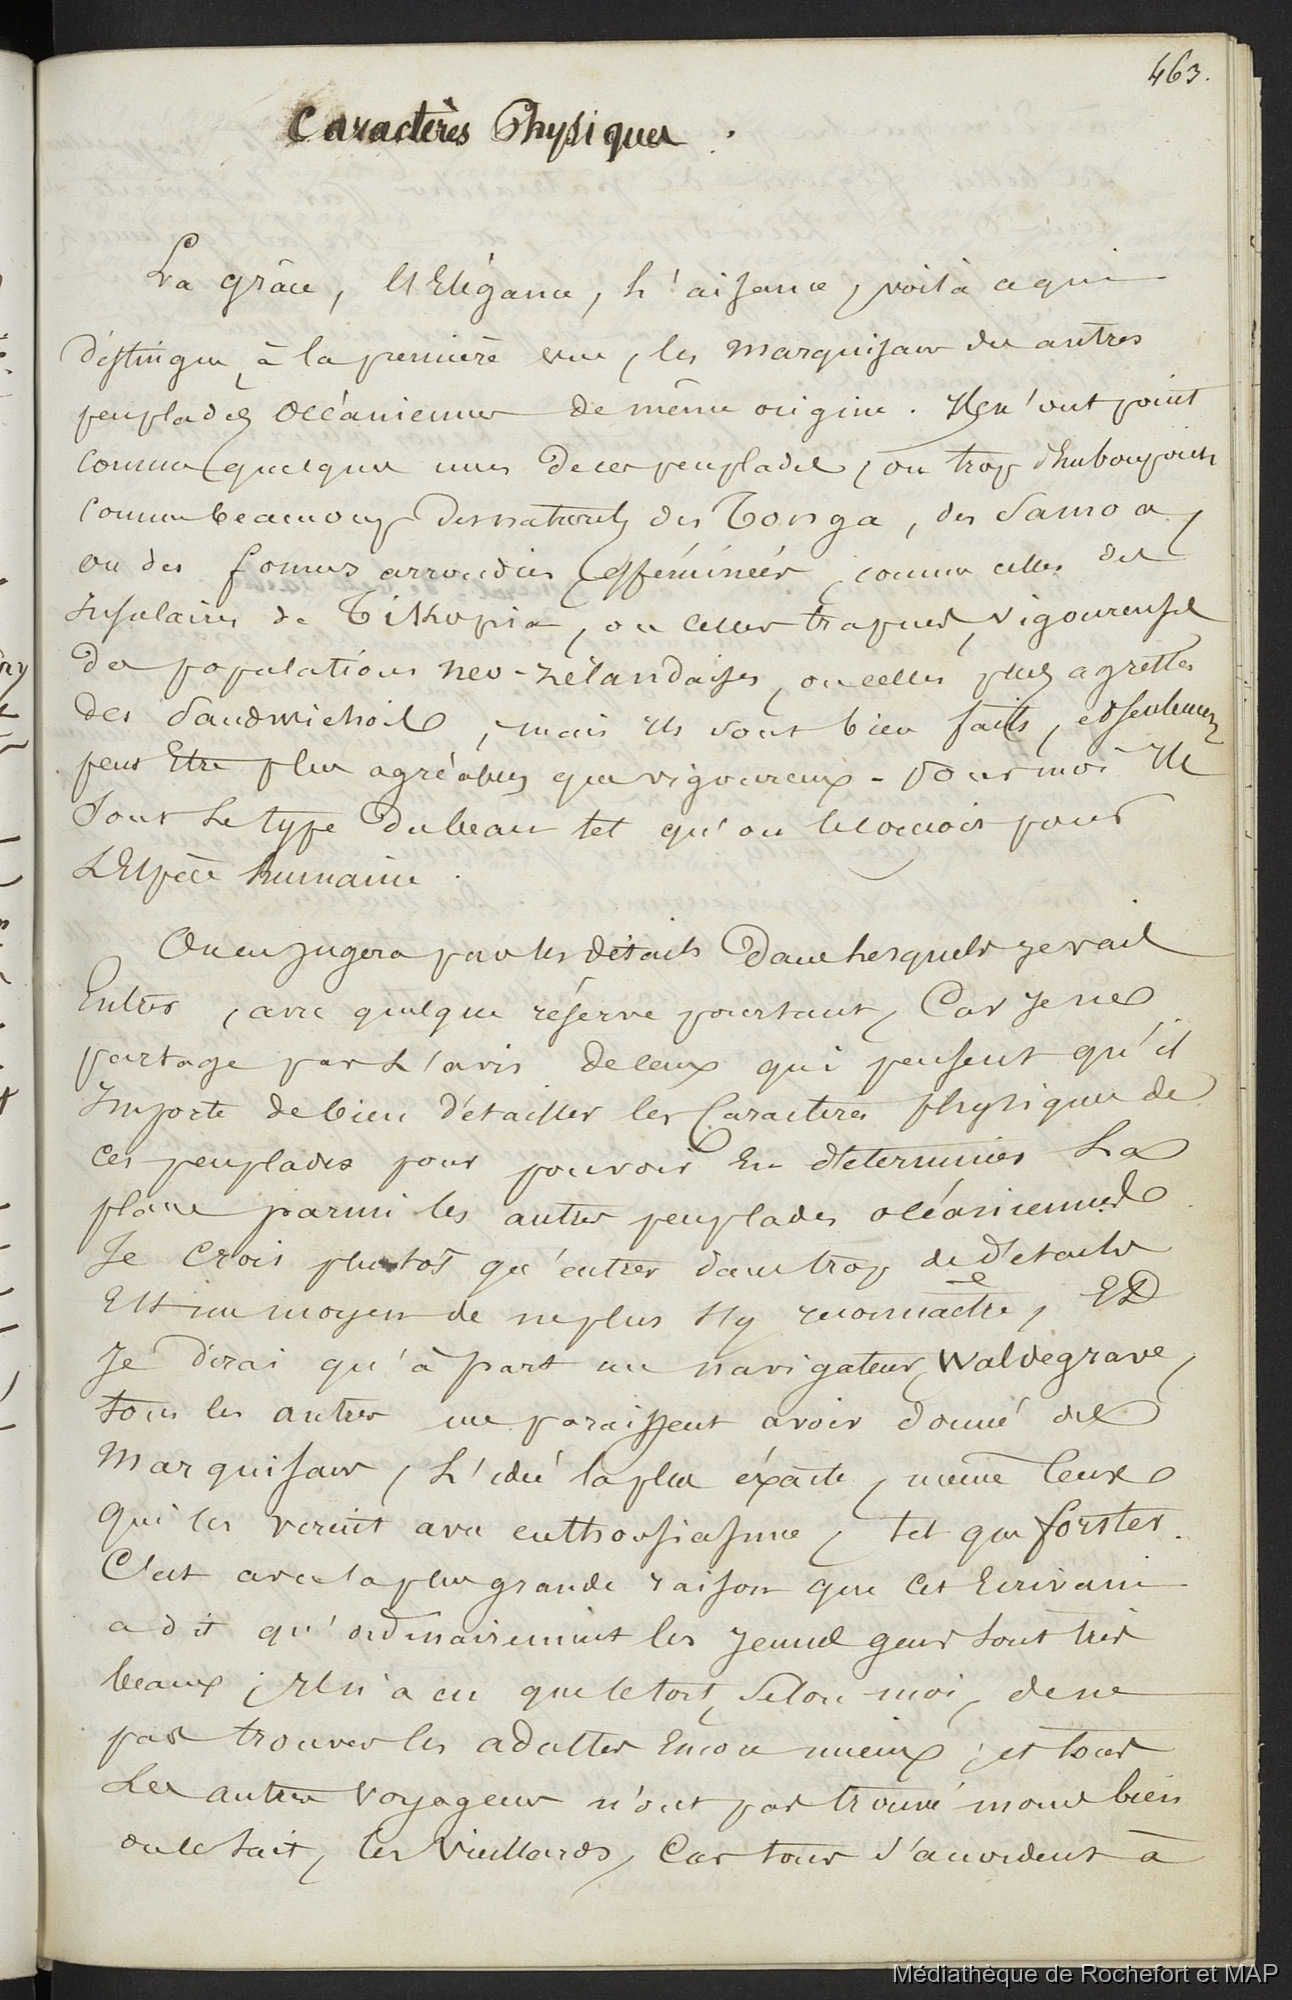 463.
Caractères Physiques.
La grâce, l'Elégance, l'aisance, voilà ce qui
distingue, à la première vue, les Marquisans des autres
peuplades Océaniennes de même origine. Ils n'ont point
comme quelques unes de ces peuplades, ou trop d'embonpoint
comme beaucoup des naturels des Tonga, des Samoa,
ou des formes arrondies, efféminées, comme celles des
Insulaires de Tikopia, ou celles trapues, vigoureuses
des populations neo-zélandaises, ou celles plus agrestes
des Sandwichois, mais ils sont bien faits, et seulement
peut Etre plus agréables que vigoureux - Pour moi Ils
Sont Le type du beau tel qu'on le conçoit pour
L'Espèce humaine.
On en jugera par les détails dans lesquels je vais
Entrer, avec quelque réserve pourtant, Car Je ne
partage pas L'avis de ceux qui pensent qu'il
Importe de bien détailler les Caractères physiques de
ces peuplades pour pouvoir En déterminer La
place parmi les autres peuplades océaniennes.
Je Crois plutôt qu'entrer dans trop de détails
Est un moyen de ne plus s'y reconnaitre, Et
Je dirai qu'à part un navigateur, Waldegrave,
tous les autres me paraissent avoir donné des
Marquisans, L'idée la plus éxacte, même Ceux
qui les virent avec enthousiasme, tel que forster.
C'est avec la plus grande raison que cet Ecrivain
a dit qu'ordinairement les jeunes gens sont très
beaux; Il n'a eu que le tort, Selon moi, de ne
pas trouver les adultes Encore mieux; et tous
Les autres Voyageurs n'ont pas trouvé moins bien
on le sait, les Vieillards, Car tous s'accordent à
Médiathèque de Rochefort et MAP